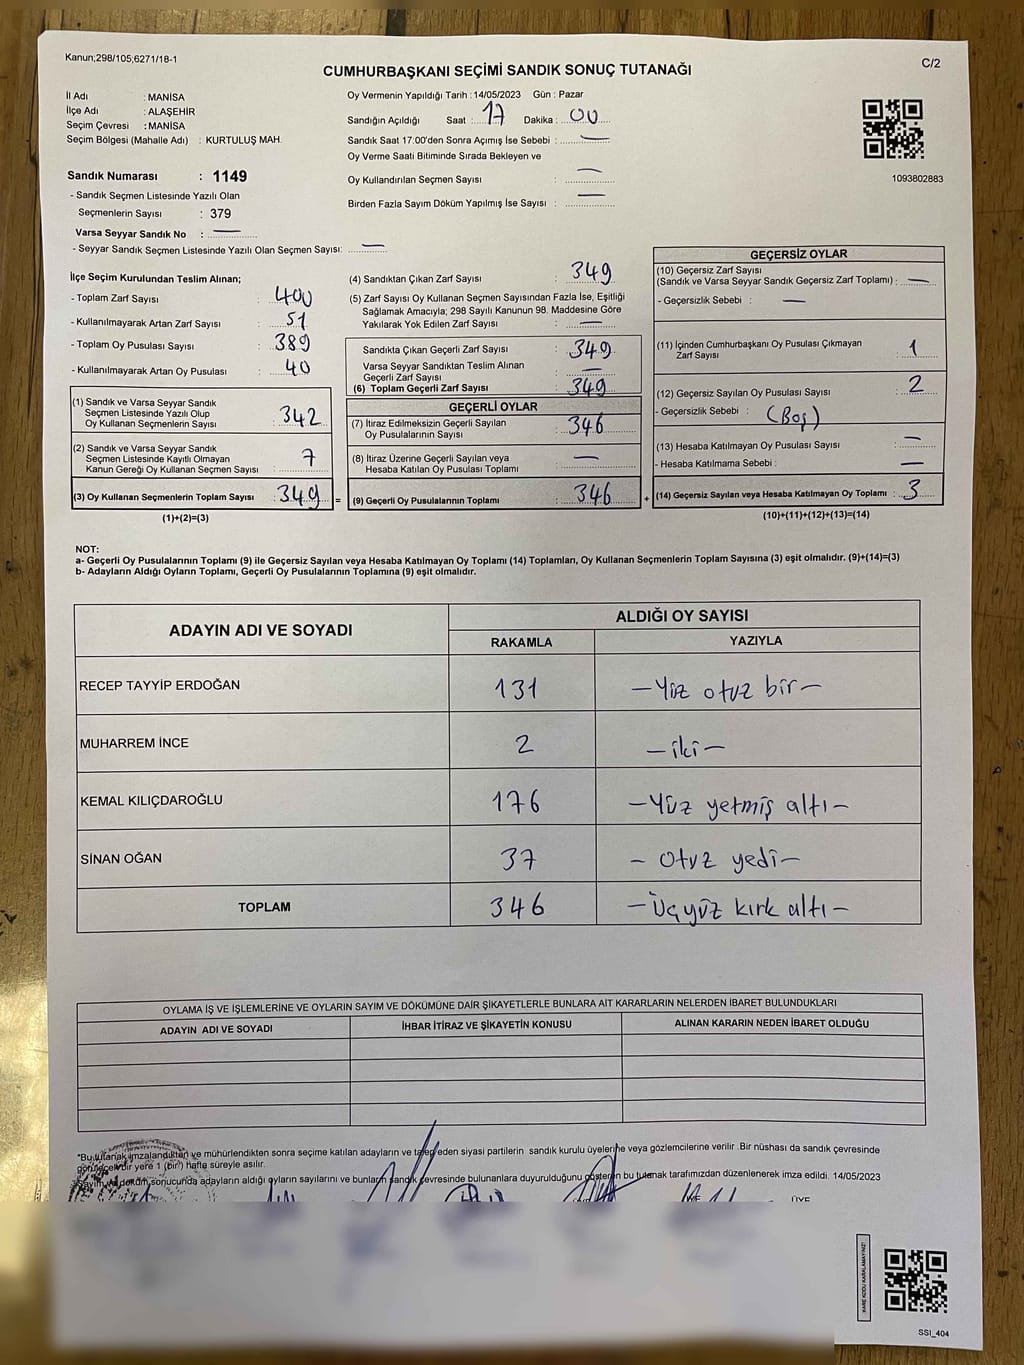 Kanun;298/105;6271/18-1
C/2
CUMHURBAŞKANI SEÇİMİ SANDIK SONUÇ TUTANAĞI
İl Adı : MANİSA
İlçe Adı : ALAŞEHİR
Seçim Çevresi : MANİSA
Seçim Bölgesi (Mahalle Adı) : KURTULUŞ MAH.
Sandık Numarası : 1149
- Sandık Seçmen Listesinde Yazılı Olan
Seçmenlerin Sayısı : 379
Varsa Seyyar Sandık No : —
- Seyyar Sandık Seçmen Listesinde Yazılı Olan Seçmen Sayısı: —
Oy Vermenin Yapıldığı Tarih : 14/05/2023 Gün : Pazar
Sandığın Açıldığı Saat : 17 Dakika : 00
Sandık Saat 17:00'den Sonra Açımış İse Sebebi : —
Oy Verme Saati Bitiminde Sırada Bekleyen ve
Oy Kullandırılan Seçmen Sayısı : —
Birden Fazla Sayım Döküm Yapılmış İse Sayısı : —
1093802883
İlçe Seçim Kurulundan Teslim Alınan;
- Toplam Zarf Sayısı : 400
- Kullanılmayarak Artan Zarf Sayısı : 51
- Toplam Oy Pusulası Sayısı : 389
- Kullanılmayarak Artan Oy Pusulası : 40
(1) Sandık ve Varsa Seyyar Sandık
Seçmen Listesinde Yazılı Olup
Oy Kullanan Seçmenlerin Sayısı : 342
(2) Sandık ve Varsa Seyyar Sandık
Seçmen Listesinde Kayıtlı Olmayan
Kanun Gereği Oy Kullanan Seçmen Sayısı : 7
(3) Oy Kullanan Seçmenlerin Toplam Sayısı : 349 =
(1)+(2)=(3)
(4) Sandıktan Çıkan Zarf Sayısı : 349
(5) Zarf Sayısı Oy Kullanan Seçmen Sayısından Fazla İse, Eşitliği
Sağlamak Amacıyla; 298 Sayılı Kanunun 98. Maddesine Göre
Yakılarak Yok Edilen Zarf Sayısı : —
Sandıkta Çıkan Geçerli Zarf Sayısı : 349
Varsa Seyyar Sandıktan Teslim Alınan
Geçerli Zarf Sayısı : —
(6) Toplam Geçerli Zarf Sayısı : 349
GEÇERLİ OYLAR
(7) İtiraz Edilmeksizin Geçerli Sayılan
Oy Pusulalarının Sayısı : 346
(8) İtiraz Üzerine Geçerli Sayılan veya
Hesaba Katılan Oy Pusulası Toplamı : —
(9) Geçerli Oy Pusulalarının Toplamı : 346 +
GEÇERSİZ OYLAR
(10) Geçersiz Zarf Sayısı
(Sandık ve Varsa Seyyar Sandık Geçersiz Zarf Toplamı) : —
- Geçersizlik Sebebi : —
(11) İçinden Cumhurbaşkanı Oy Pusulası Çıkmayan
Zarf Sayısı : 1
(12) Geçersiz Sayılan Oy Pusulası Sayısı : 2
- Geçersizlik Sebebi : (Boş)
(13) Hesaba Katılmayan Oy Pusulası Sayısı : —
- Hesaba Katılmama Sebebi : —
(14) Geçersiz Sayılan veya Hesaba Katılmayan Oy Toplamı : 3
(10)+(11)+(12)+(13)=(14)
NOT:
a- Geçerli Oy Pusulalarının Toplamı (9) ile Geçersiz Sayılan veya Hesaba Katılmayan Oy Toplamı (14) Toplamları, Oy Kullanan Seçmenlerin Toplam Sayısına (3) eşit olmalıdır. (9)+(14)=(3)
b- Adayların Aldığı Oyların Toplamı, Geçerli Oy Pusulalarının Toplamına (9) eşit olmalıdır.
ADAYIN ADI VE SOYADI ALDIĞI OY SAYISI
RAKAMLA YAZIYLA
RECEP TAYYİP ERDOĞAN 131 —Yüz otuz bir—
MUHARREM İNCE 2 —iki—
KEMAL KILIÇDAROĞLU 176 —Yüz yetmiş altı—
SİNAN OĞAN 37 — otuz yedi—
TOPLAM 346 —Üçyüz kırk altı—
OYLAMA İŞ VE İŞLEMLERİNE VE OYLARIN SAYIM VE DÖKÜMÜNE DAİR ŞİKAYETLERLE BUNLARA AİT KARARLARIN NELERDEN İBARET BULUNDUKLARI
ADAYIN ADI VE SOYADI İHBAR İTİRAZ VE ŞİKAYETİN KONUSU ALINAN KARARIN NEDEN İBARET OLDUĞU
*Bu tutanak imzalandıktan ve mühürlendikten sonra seçime katılan adayların ve talep eden siyasi partilerin sandık kurulu üyelerine veya gözlemcilerine verilir .Bir nüshası da sandık çevresinde
görülecek bir yere 1 (bir) hafta süreyle asılır.
Sayım ve döküm sonucunda adayların aldığı oyların sayılarını ve bunların sandık çevresinde bulunanlara duyurulduğunu gösteren bu tutanak tarafımızdan düzenlenerek imza edildi. 14/05/2023
ÜYE
KARE KODU KARALAMAYINIZ!
SSI_404